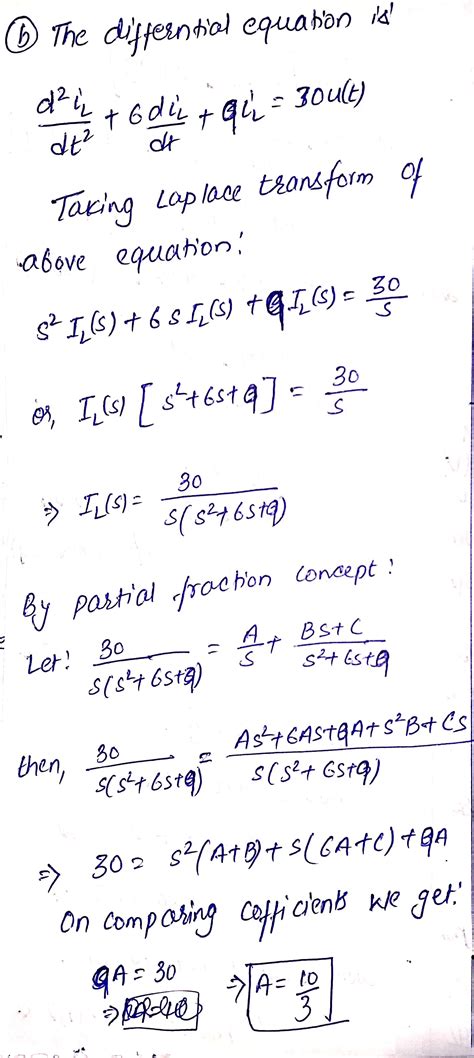 (b) The differntial equation is'
d²i_L/dt² + 6 di_L/dt + 9i_L = 30u(t)
Taking Laplace transform of
above equation:
s² I_L(s) + 6 s I_L(s) + 9 I_L(s) = 30/s
or, I_L(s) [s²+6s+9] = 30/s
⇒ I_L(s) = 30/(s(s²+6s+9))
By partial fraction concept:
Let: 30/(s(s²+6s+9)) = A/s + (Bs+C)/(s²+6s+9)
then, 30/(s(s²+6s+9)) = (As²+6As+9A+s²B+Cs)/(s(s²+6s+9))
⇒ 30 = s²(A+B)+s(6A+C)+9A
On comparing cofficients we get:
9A = 30 ⇒ A = 10/3